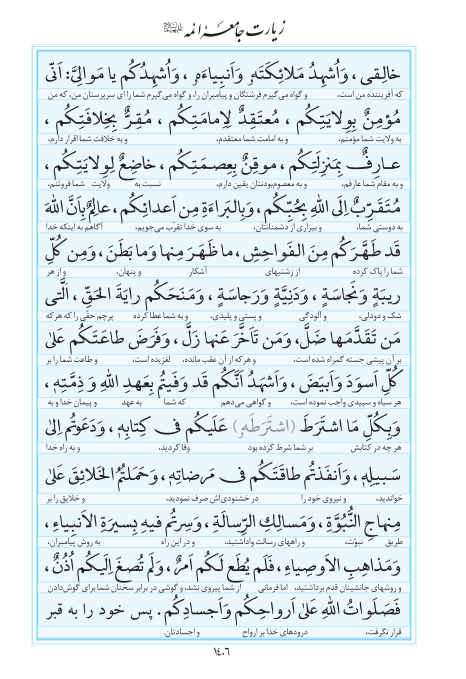 زیارت جامعهٔ ائمه
خالِقی ، وَاُشهِدُ مَلائِکَتَهٗ وَاَنبِیاءَهٗ ، وَاُشهِدُکُم یا مَوالِیَّ: اَنّی
که آفریننده من است، و گواه می‌گیرم فرشتگان و پیامبران را، و گواه می‌گیرم شما را ای سرپرستان من، که من
مُؤمِنٌ بِوِلایَتِکُم ، مُعتَقِدٌ لِاِمامَتِکُم ، مُقِرٌّ بِخِلافَتِکُم ،
به ولایت شما مؤمنم، و به امامت شما معتقدم، و به خلافت شما اقرار دارم،
عارِفٌ بِمَنزِلَتِکُم ، موقِنٌ بِعِصمَتِکُم ، خاضِعٌ لِوِلایَتِکُم ،
و به مقام شما عارفم، و به معصوم‌بودنتان یقین دارم، نسبت به ولایت شما فروتنم،
مُتَقَرِّبٌ اِلَی اللهِ بِحُبِّکُم ، وَبِالبَراءَةِ مِن اَعدائِکُم ، عالِمٌ بِاَنَّ اللهَ
به دوستی شما، و بیزاری از دشمنانتان، به سوی خدا تقرب می‌جویم، آگاهم به اینکه خدا
قَد طَهَّرَکُم مِنَ الفَواحِشِ ، ما ظَهَرَ مِنها وَما بَطَنَ ، وَمِن کُلِّ
شما را پاک کرده از زشتیهای آشکار و پنهان، و از هر
ریبَةٍ وَنَجاسَةٍ ، وَدَنِیَّةٍ وَرَجاسَةٍ ، وَمَنَحَکُم رایَةَ الحَقِّ ، الَّتی
شک و دودلی، و آلودگی و پستی و پلیدی، و به شما عطا کرده پرچم حقّی را که هر که
مَن تَقَدَّمَها ضَلَّ ، وَمَن تَاَخَّرَ عَنها زَلَّ ، وَفَرَضَ طاعَتَکُم عَلیٰ
بر آن پیشی جسته گمراه شده است، و هر که از آن عقب مانده، لغزیده است، و طاعت شما را بر
کُلِّ اَسوَدَ وَاَبیَضَ ، وَاَشهَدُ اَنَّکُم قَد وَفَیتُم بِعَهدِ اللهِ وَ ذِمَّتِهٖ ،
هر سیاه و سپیدی واجب نموده است، و گواهی می‌دهم که شما به عهد و پیمان خدا و به
وَبِکُلِّ مَا اشتَرَطَ (اشتَرَطَهٗ) عَلَیکُم فی کِتابِهٖ ، وَدَعَوتُم اِلیٰ
هر چه در کتابش بر شما شرط کرده بود وفا کردید، و به راه خدا
سَبیلِهٖ ، وَاَنفَذتُم طاقَتَکُم فی مَرضاتِهٖ ، وَحَمَلتُمُ الخَلائِقَ عَلیٰ
خواندید، و نیروی خود را در خشنودی‌اش صرف نمودید، و خلایق را بر
مِنهاجِ النُّبُوَّةِ ، وَمَسالِکِ الرِّسالَةِ ، وَسِرتُم فیهِ بِسیرَةِ الاَنبِیاءِ ،
طریق نبوّت، و راههای رسالت واداشتید، و در این راه به روش پیامبران،
وَمَذاهِبِ الاَوصِیاءِ ، فَلَم یُطَع لَکُم اَمرٌ ، وَلَم تُصغَ اِلَیکُم اُذُنٌ ،
و روشهای جانشینان قدم برداشتید، اما فرمانی از شما پیروی نشد، و گوشی در برابر سخنان شما برای گوش‌دادن
فَصَلَواتُ اللهِ عَلیٰ اَرواحِکُم وَاَجسادِکُم. پس خود را به قبر
قرار نگرفت، درودهای خدا بر ارواح و اجسادتان.
۱۴۰۶